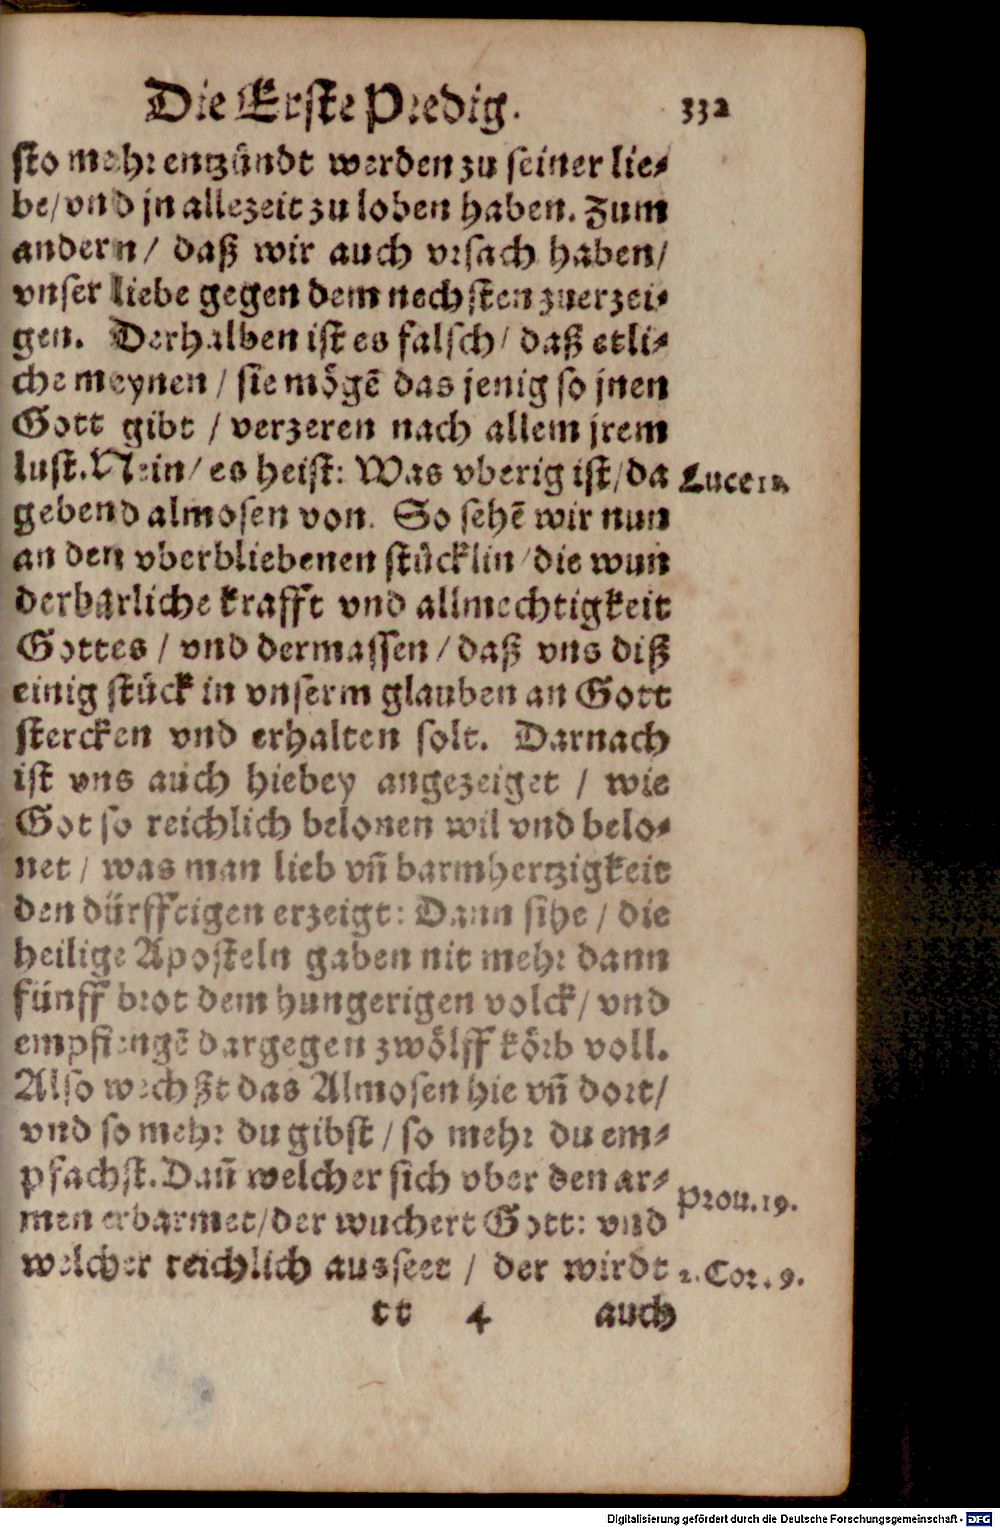 Die Erste Predig. 332
sto mehr entzündt werden zu seiner lie-
be/vnd jn allezeit zu loben haben. Zum
andern/ daß wir auch vrsach haben/
vnser liebe gegen dem nechsten zuerzei-
gen. Derhalben ist es falsch/ daß etli-
che meynen/ sie mögē das jenig so jnen
Gott gibt / verzeren nach allem jrem
lust. Nein/ es heist: Was vberig ist/da Luce 11.
gebend almosen von. So sehē wir nun
an den vberbliebenen stücklin/die wun
derbarliche krafft vnd allmechtigkeit
Gottes / vnd dermassen / daß vns diß
einig stück in vnserm glauben an Gott
stercken vnd erhalten solt. Darnach
ist vns auch hiebey angezeiget / wie
Got so reichlich belonen wil vnd belo-
net / was man lieb vñ barmhertzigkeit
den dürfftigen erzeigt: Dann sihe / die
heilige Aposteln gaben nit mehr dann
fünff brot dem hungerigen volck/ vnd
empfiengē dargegen zwölff körb voll.
Also wechßt das Almosen hie vñ dort/
vnd so mehr du gibst / so mehr du em-
pfachst. Dañ welcher sich vber den ar-
men erbarmet/der wuchert Gott: vnd Prou. 19.
welcher reichlich ausseet / der wirdt 2. Cor. 9.
tt 4 auch
Digitalisierung gefördert durch die Deutsche Forschungsgemeinschaft - DFG